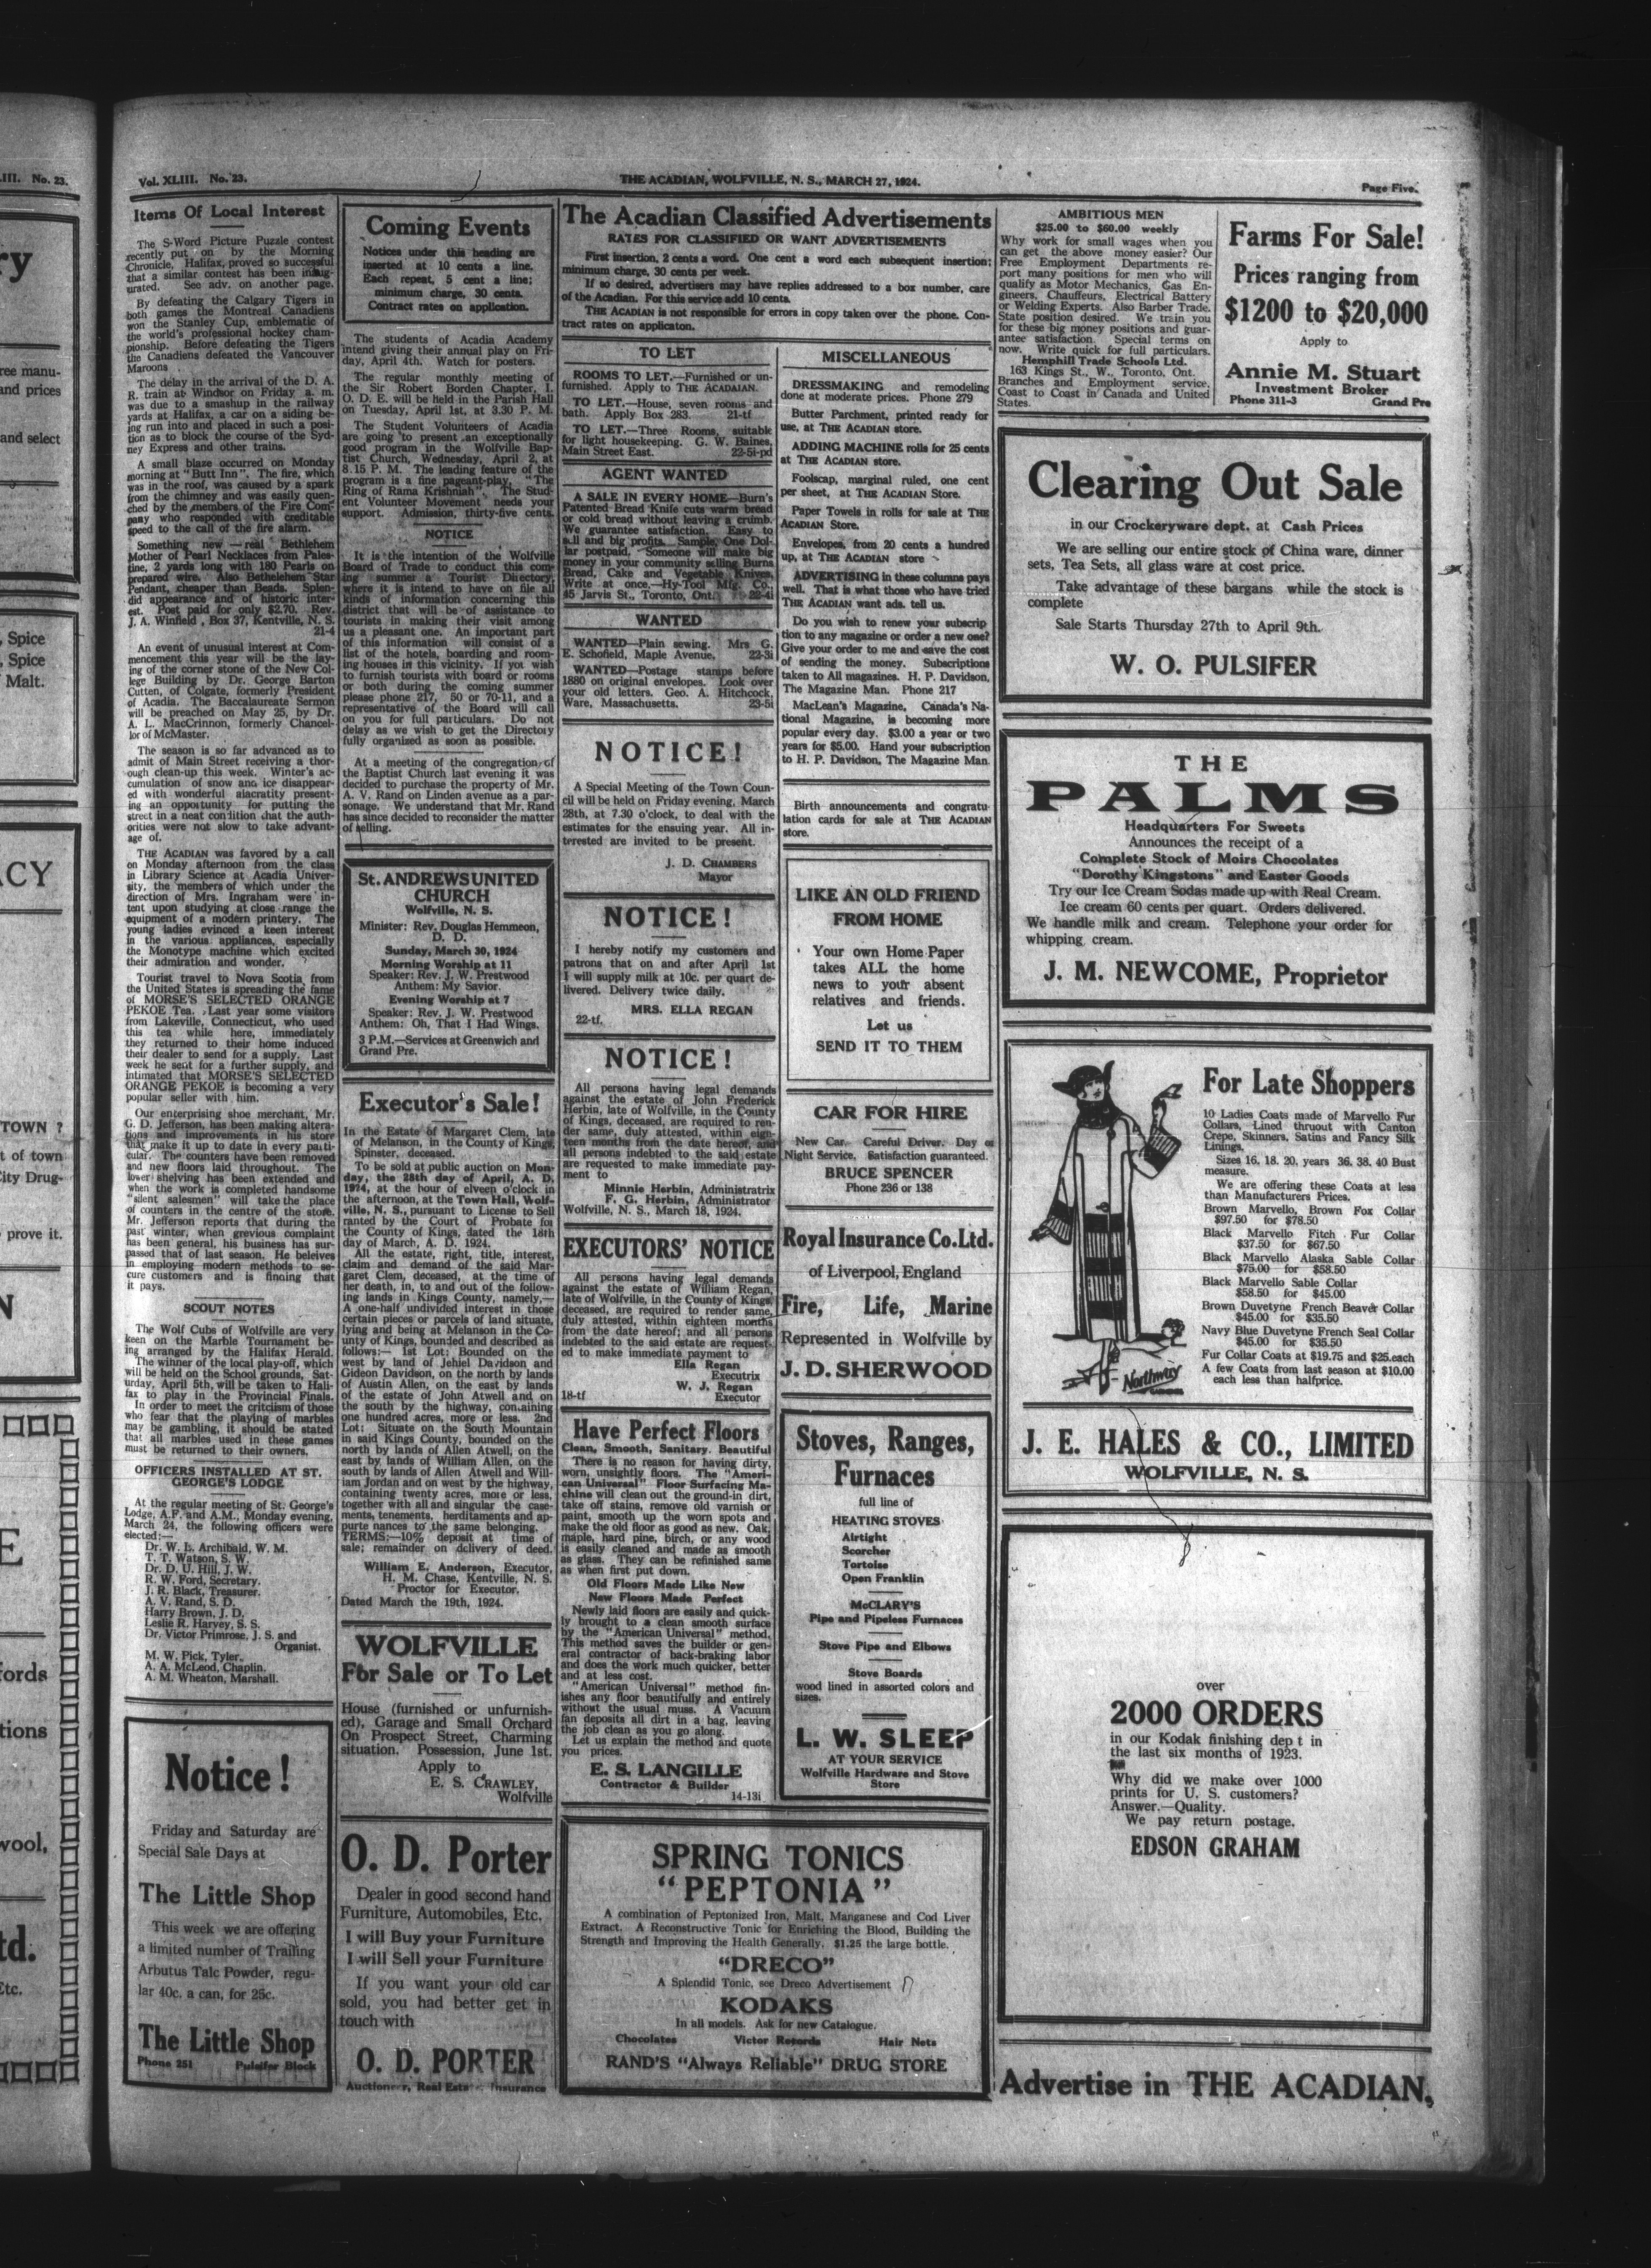 Vol. XLIII. No. 23.
THE ACADIAN, WOLFVILLE, N. S., MARCH 27, 1924.
Page Five.
Items Of Local Interest
The S-Word Picture Puzzle contest
recently put on by the Morning
Chronicle, Halifax, proved so successful
that a similar contest has been inaug-
urated. See adv. on another page.
By defeating the Calgary Tigers in
both games the Montreal Canadiens
won the Stanley Cup, emblematic of
the world's professional hockey cham-
pionship. Before defeating the Tigers
the Canadiens defeated the Vancouver
Maroons.
The delay in the arrival of the D. A.
R. train at Windsor on Friday a. m.
was due to a smashup in the railway
yards at Halifax, a car on a siding be-
ing run into and placed in such a posi-
tion as to block the course of the Syd-
ney Express and other trains.
A small blaze occurred on Monday
morning at "Butt Inn". The fire, which
was in the roof, was caused by a spark
from the chimney and was easily quen-
ched by the members of the Fire Com-
pany who responded with creditable
speed to the call of the fire alarm.
Something new—real Bethlehem
Mother of Pearl Necklaces from Pales-
tine, 2 yards long with 180 Pearls on
prepared wire. Also Bethelehem Star
Pendant, cheaper than Beads. Splen-
did appearance and of historic inter-
est. Post paid for only $2.70. Rev.
J. A. Winfield, Box 37, Kentville, N. S.
21-4
An event of unusual interest at Com-
mencement this year will be the lay-
ing of the corner stone of the New Col-
lege Building by Dr. George Barton
Cutten, of Colgate, formerly President
of Acadia. The Baccalaureate Sermon
will be preached on May 25, by Dr.
A. L. MacCrinnon, formerly Chancel-
lor of McMaster.
The season is so far advanced as to
admit of Main Street receiving a thor-
ough clean-up this week. Winter's ac-
cumulation of snow and ice disappear-
ed with wonderful alacratity present-
ing an oppottunity for putting the
street in a neat condition that the auth-
orities were not slow to take advant-
age of.
THE ACADIAN was favored by a call
on Monday afternoon from the class
in Library Science at Acadia Univer-
sity, the members of which under the
direction of Mrs. Ingraham were in-
tent upon studying at close range the
equipment of a modern printery. The
young ladies evinced a keen interest
in the various appliances, especially
the Monotype machine which excited
their admiration and wonder.
Tourist travel to Nova Scotia from
the United States is spreading the fame
of MORSE'S SELECTED ORANGE
PEKOE Tea. Last year some visitors
from Lakeville, Connecticut, who used
this tea while here, immediately
they returned to their home induced
their dealer to send for a supply. Last
week he sent for a further supply, and
intimated that MORSE'S SELECTED
ORANGE PEKOE is becoming a very
popular seller with him.
Our enterprising shoe merchant, Mr.
G. D. Jefferson, has been making altera-
tions and improvements in his store
that make it up to date in every parti-
cular. The counters have been removed
and new floors laid throughout. The
lower shelving has been extended and
when the work is completed handsome
"silent salesmen" will take the place
of counters in the centre of the store.
Mr. Jefferson reports that during the
past winter, when grevious complaint
has been general, his business has sur-
passed that of last season. He beleives
in employing modern methods to se-
cure customers and is finding that
it pays.
SCOUT NOTES
The Wolf Cubs of Wolfville are very
keen on the Marble Tournament be-
ing arranged by the Halifax Herald.
The winner of the local play-off, which
will be held on the School grounds, Sat-
urday, April 5th, will be taken to Hali-
fax to play in the Provincial Finals.
In order to meet the critciism of those
who fear that the playing of marbles
may be gambling, it should be stated
that all marbles used in these games
must be returned to their owners.
OFFICERS INSTALLED AT ST.
GEORGE'S LODGE
At the regular meeting of St. George's
Lodge, A.F. and A.M., Monday evening,
March 24, the following officers were
elected:—
Dr. W. L. Archibald, W. M.
T. T. Watson, S. W.
Dr. D. U. Hill, J. W.
R. W. Ford, Secretary.
J. R. Black, Treasurer.
A. V. Rand, S. D.
Harry Brown, J. D.
Leslie R. Harvey, S. S.
Dr. Victor Primrose, J. S. and
Organist.
M. W. Pick, Tyler.
A. A. McLeod, Chaplin.
A. M. Wheaton, Marshall.
Notice!
Friday and Saturday are
Special Sale Days at
The Little Shop
This week we are offering
a limited number of Trailing
Arbutus Talc Powder, regu-
lar 40c. a can, for 25c.
The Little Shop
Phone 251 Pulsifer Block
Coming Events
Notices under this heading are
inserted at 10 cents a line.
Each repeat, 5 cent a line;
minimum charge, 30 cents.
Contract rates on application.
The students of Acadia Academy
intend giving their annual play on Fri-
day, April 4th. Watch for posters.
The regular monthly meeting of
the Sir Robert Borden Chapter, I.
O. D. E. will be held in the Parish Hall
on Tuesday, April 1st, at 3.30 P. M.
The Student Volunteers of Acadia
are going to present an exceptionally
good program in the Wolfville Bap-
tist Church, Wednesday, April 2, at
8.15 P. M. The leading feature of the
program is a fine pageant-play, "The
Ring of Rama Krishniah". The Stud-
ent Volunteer Movement needs your
support. Admission, thirty-five cents.
NOTICE
It is the intention of the Wolfville
Board of Trade to conduct this com-
ing summer a Tourist Directory,
where it is intend to have on file all
kinds of information concerning this
district that will be of assistance to
tourists in making their visit among
us a pleasant one. An important part
of this information will consist of a
list of the hotels, boarding and room-
ing houses in this vicinity. If you wish
to furnish tourists with board or rooms
or both during the coming summer
please phone 217, 50 or 70-11, and a
representative of the Board will call
on you for full particulars. Do not
delay as we wish to get the Directory
fully organized as soon as possible.
At a meeting of the congregation of
the Baptist Church last evening it was
decided to purchase the property of Mr.
A. V. Rand on Linden avenue as a par-
sonage. We understand that Mr. Rand
has since decided to reconsider the matter
of selling.
St. ANDREWS UNITED
CHURCH
Wolfville, N. S.
Minister: Rev. Douglas Hemmeon,
D. D.
Sunday, March 30, 1924
Morning Worship at 11
Speaker: Rev. J. W. Prestwood
Anthem: My Savior.
Evening Worship at 7
Speaker: Rev. J. W. Prestwood
Anthem: Oh, That I Had Wings.
3 P.M.—Services at Greenwich and
Grand Pre.
Executor's Sale!
In the Estate of Margaret Clem, late
of Melanson, in the County of Kings,
Spinster, deceased.
To be sold at public auction on Mon-
day, the 28th day of April, A. D.
1924, at the hour of elveen o'clock in
the afternoon, at the Town Hall, Wolf-
ville, N. S., pursuant to License to Sell
ranted by the Court of Probate for
the County of Kings, dated the 18th
day of March, A. D. 1924.
All the estate, right, title, interest,
claim and demand of the said Mar-
garet Clem, deceased, at the time of
her death, in, to and out of the follow-
ing lands in Kings County, namely,—
A one-half undivided interest in those
certain pieces or parcels of land situate,
lying and being at Melanson in the Co-
unty of Kings, bounded and described as
follows:— 1st Lot: Bounded on the
west by land of Jehiel Davidson and
Gideon Davidson, on the north by lands
of Austin Allen, on the east by lands
of the estate of John Atwell and on
the south by the highway, containing
one hundred acres, more or less. 2nd
Lot: Situate on the South Mountain
in said Kings County, bounded on the
north by lands of Allen Atwell, on the
east by lands of William Allen, on the
south by lands of Allen Atwell and Will-
iam Jordan and on west by the highway,
containing twenty acres, more or less,
together with all and singular the ease-
ments, tenements, herditaments and ap-
purte nances to the same belonging.
TERMS;—10% deposit at time of
sale; remainder on delivery of deed.
William E. Anderson, Executor,
H. M. Chase, Kentville, N. S.
Proctor for Executor.
Dated March the 19th, 1924.
WOLFVILLE
For Sale or To Let
House (furnished or unfurnish-
ed), Garage and Small Orchard
On Prospect Street, Charming
situation. Possession, June 1st.
Apply to
E. S. CRAWLEY,
Wolfville
O. D. Porter
Dealer in good second hand
Furniture, Automobiles, Etc.
I will Buy your Furniture
I will Sell your Furniture
If you want your old car
sold, you had better get in
touch with
O. D. PORTER
Auctioneer, Real Estate, Insurance
The Acadian Classified Advertisements
RATES FOR CLASSIFIED OR WANT ADVERTISEMENTS
First insertion, 2 cents a word. One cent a word each subsequent insertion;
minimum charge, 30 cents per week.
If so desired, advertisers may have replies addressed to a box number, care
of the Acadian. For this service add 10 cents.
THE ACADIAN is not responsible for errors in copy taken over the phone. Con-
tract rates on applicaton.
TO LET
ROOMS TO LET.—Furnished or un-
furnished. Apply to THE ACADAIAN.
TO LET.—House, seven rooms and
bath. Apply Box 283. 21-tf
TO LET.—Three Rooms, suitable
for light housekeeping. G. W. Baines,
Main Street East. 22-5i-pd
AGENT WANTED
A SALE IN EVERY HOME—Burn's
Patented Bread Knife cuts warm bread
or cold bread without leaving a crumb.
We guarantee satisfaction. Easy to
sell and big profits. Sample, One Dol-
lar postpaid. Someone will make big
money in your community selling Burns
Bread, Cake and Vegetable Knives.
Write at once.—Hy-Tool Mfg. Co.,
45 Jarvis St., Toronto, Ont. 22-4i
WANTED
WANTED—Plain sewing. Mrs G.
E. Schofield, Maple Avenue. 22-3i
WANTED—Postage stamps before
1880 on original envelopes. Look over
your old letters. Geo. A. Hitchcock,
Ware, Massachusetts. 23-5i
NOTICE!
A Special Meeting of the Town Coun-
cil will be held on Friday evening, March
28th, at 7.30 o'clock, to deal with the
estimates for the ensuing year. All in-
terested are invited to be present.
J. D. CHAMBERS
Mayor
NOTICE!
I hereby notify my customers and
patrons that on and after April 1st
I will supply milk at 10c. per quart de-
livered. Delivery twice daily.
MRS. ELLA REGAN
22-tf.
NOTICE!
All persons having legal demands
against the estate of John Frederick
Herbin, late of Wolfville, in the County
of Kings, deceased, are required to ren-
der same, duly attested, within eigh-
teen months from the date hereof, and
all persons indebted to the said estate
are requested to make immediate pay-
ment to
Minnie Herbin, Administratrix
F. G. Herbin, Administrator
Wolfville, N. S., March 18, 1924.
EXECUTORS' NOTICE
All persons having legal demands
against the estate of William Regan,
late of Wolfville, in the County of Kings,
deceased, are required to render same,
duly attested, within eighteen months
from the date hereof; and all persons
indebted to the said estate are request-
ed to make immediate payment to
Ella Regan
Executrix
W. J. Regan
18-tf Executor
Have Perfect Floors
Clean, Smooth, Sanitary. Beautiful
There is no reason for having dirty,
worn, unsightly floors. The "Ameri-
can Universal" Floor Surfacing Ma-
chine will clean out the ground-in dirt,
take off stains, remove old varnish or
paint, smooth up the worn spots and
make the old floor as good as new. Oak,
maple, hard pine, birch, or any wood
is easily cleaned and made as smooth
as glass. They can be refinished same
as when first put down.
Old Floors Made Like New
New Floors Made Perfect
Newly laid floors are easily and quick-
ly brought to a clean smooth surface
by the "American Universal" method.
This method saves the builder or gen-
eral contractor of back-braking labor
and does the work much quicker, better
and at less cost.
"American Universal" method fin-
ishes any floor beautifully and entirely
without the usual muss. A Vacuum
fan deposits all dirt in a bag, leaving
the job clean as you go along.
Let us explain the method and quote
you prices.
E. S. LANGILLE
Contractor & Builder
14-13i
MISCELLANEOUS
DRESSMAKING and remodeling
done at moderate prices. Phone 279
Butter Parchment, printed ready for
use, at THE ACADIAN store.
ADDING MACHINE rolls for 25 cents
at THE ACADIAN store.
Foolscap, marginal ruled, one cent
per sheet, at THE ACADIAN Store.
Paper Towels in rolls for sale at THE
ACADIAN Store.
Envelopes, from 20 cents a hundred
up, at THE ACADIAN store
ADVERTISING in these columns pays
well. That is what those who have tried
THE ACADIAN want ads. tell us.
Do you wish to renew your subscrip
tion to any magazine or order a new one?
Give your order to me and save the cost
of sending the money. Subscriptions
taken to All magazines. H. P. Davidson,
The Magazine Man. Phone 217
MacLean's Magazine, Canada's Na-
tional Magazine, is becoming more
popular every day. $3.00 a year or two
years for $5.00. Hand your subscription
to H. P. Davidson, The Magazine Man.
Birth announcements and congratu-
lation cards for sale at THE ACADIAN
store.
LIKE AN OLD FRIEND
FROM HOME
Your own Home Paper
takes ALL the home
news to your absent
relatives and friends.
Let us
SEND IT TO THEM
CAR FOR HIRE
New Car. Careful Driver. Day or
Night Service. Satisfaction guaranteed.
BRUCE SPENCER
Phone 236 or 138
Royal Insurance Co. Ltd.
of Liverpool, England
Fire, Life, Marine
Represented in Wolfville by
J. D. SHERWOOD
Stoves, Ranges,
Furnaces
full line of
HEATING STOVES
Airtight
Scorcher
Tortoise
Open Franklin
McCLARY'S
Pipe and Pipeless Furnaces
Stove Pipe and Elbows
Stove Boards
wood lined in assorted colors and
sizes.
L. W. SLEEP
AT YOUR SERVICE
Wolfville Hardware and Stove
Store
SPRING TONICS
"PEPTONIA"
A combination of Peptonized Iron, Malt, Manganese and Cod Liver
Extract. A Reconstructive Tonic for Enriching the Blood, Building the
Strength and Improving the Health Generally. $1.25 the large bottle.
"DRECO"
A Splendid Tonic, see Dreco Advertisement
KODAKS
In all models. Ask for new Catalogue.
Chocolates Victor Records Hair Nets
RAND'S "Always Reliable" DRUG STORE
AMBITIOUS MEN
$25.00 to $60.00 weekly
Why work for small wages when you
can get the above money easier? Our
Free Employment Departments re-
port many positions for men who will
qualify as Motor Mechanics, Gas En-
gineers, Chauffeurs, Electrical Battery
or Welding Experts. Also Barber Trade.
State position desired. We train you
for these big money positions and guar-
antee satisfaction. Special terms on
now. Write quick for full particulars.
Hemphill Trade Schools Ltd.
163 Kings St., W., Toronto, Ont.
Branches and Employment service.
Coast to Coast in Canada and United
States.
Farms For Sale!
Prices ranging from
$1200 to $20,000
Apply to
Annie M. Stuart
Investment Broker
Phone 311-3 Grand Pre
Clearing Out Sale
in our Crockeryware dept. at Cash Prices
We are selling our entire stock of China ware, dinner
sets, Tea Sets, all glass ware at cost price.
Take advantage of these bargans while the stock is
complete
Sale Starts Thursday 27th to April 9th.
W. O. PULSIFER
THE
PALMS
Headquarters For Sweets
Announces the receipt of a
Complete Stock of Moirs Chocolates
"Dorothy Kingstons" and Easter Goods
Try our Ice Cream Sodas made up with Real Cream.
Ice cream 60 cents per quart. Orders delivered.
We handle milk and cream. Telephone your order for
whipping cream.
J. M. NEWCOME, Proprietor
For Late Shoppers
10 Ladies Coats made of Marvello Fur
Collars, Lined thruout with Canton
Crepe, Skinners, Satins and Fancy Silk
Linings.
Sizes 16. 18. 20. years 36. 38. 40 Bust
measure.
We are offering these Coats at less
than Manufacturers Prices.
Brown Marvello, Brown Fox Collar
$97.50 for $78.50
Black Marvello Fitch Fur Collar
$37.50 for $67.50
Black Marvello Alaska Sable Collar
$75.00 for $58.50
Black Marvello Sable Collar
$58.50 for $45.00
Brown Duvetyne French Beaver Collar
$45.00 for $35.50
Navy Blue Duvetyne French Seal Collar
$45.00 for $35.50
Fur Collar Coats at $19.75 and $25.each
A few Coats from last season at $10.00
each less than halfprice.
Northway
J. E. HALES & CO., LIMITED
WOLFVILLE, N. S.
over
2000 ORDERS
in our Kodak finishing dep t in
the last six months of 1923.
Why did we make over 1000
prints for U. S. customers?
Answer.—Quality.
We pay return postage.
EDSON GRAHAM
Advertise in THE ACADIAN.